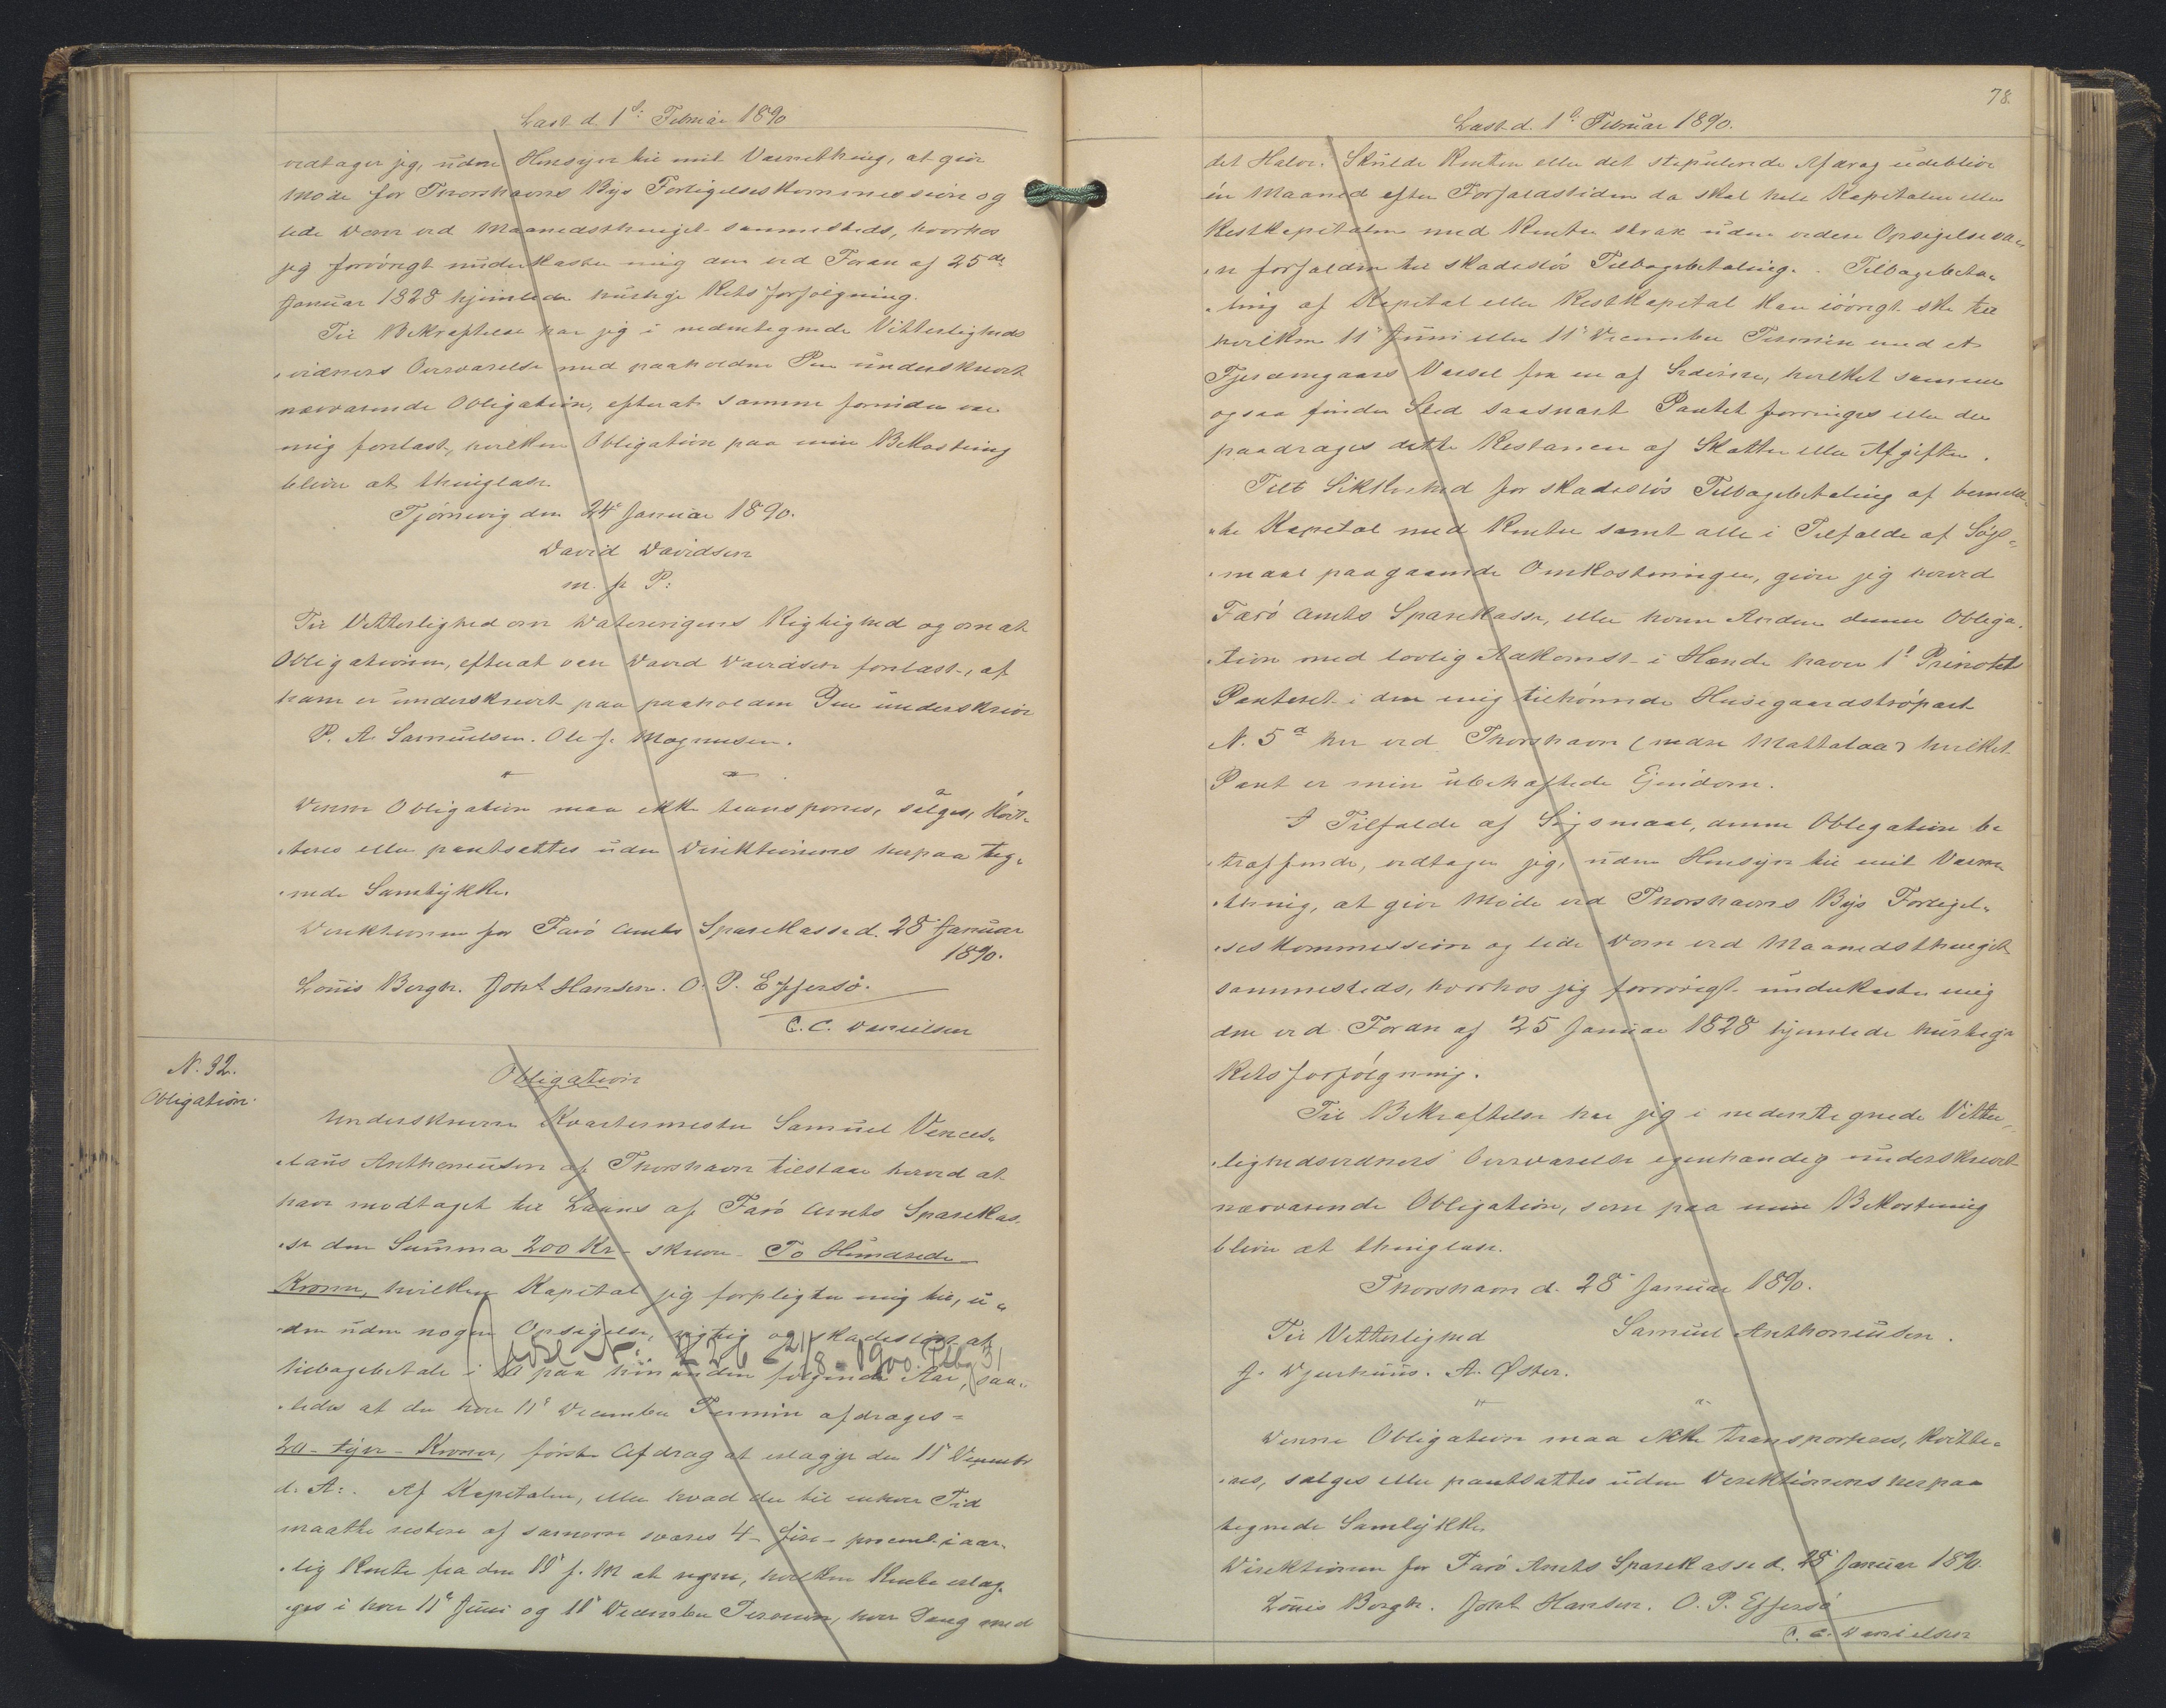 Læst d. 1ste Februar 1890
vedtager jeg, uden Hensyn til mit Værnething, at give
Møde for Thorshavns Byes Forligelseskommission og
lide Dom ved Maanedsthinget sammesteds, hvorhos
jeg forøvrigt underkaster mig den ved Fordn af 25de
Januar 1828 hjemlede hurtige Retsforfølgning.
Til Bekræftelse har jeg i nedentegnede Vitterligheds
vidners Overværelse med paaholden Pen underskrevet
nærværende Obligation, efterat samme forinden var
mig forelæst, hvilken Obligation paa min Bekostning
bliver at thinglæse.
Tjørnevig den 24de Januar 1890.
David Davidsen
m. f. P:
Til Vitterlighed om Dateringens Rigtighed og om at
Obligationen, efterat være David Davidsen forelæst, af
ham er underskrevet paa paaholden Pen underskrive
P. A. Samuelsen. Ole J. Magnusen.
Denne Obligation maa ikke transporteres, sælges, kvit-
teres eller pantsættes uden Direktionens herpaa teg-
nede Samtykke.
Direktionen for Færø Amts Sparekasse d. 28 Januar
1890.
Louis Bergh. Joh. Hansen. O. P. Effersø.
C. C. Danielsen
N. 32.
Obligation.
Obligation
Underskrevne Kvartermester Samuel Vences-
laus Anthoniussen af Thorshavn tilstaar herved at
have modtaget til Laans af Færø Amts Sparekas-
se den Summa 200 Kr - skriver - To Hundrede
Kroner, hvilken Kapital jeg forpligter mig til, u-
den uden nogen Opsigelse, rigtig og skadesløst at
tilbagebetale i 10 paa hinanden følgende Aar, saa-
ledes at der hver 11te December Termin afdrages =
20 - tyve - Kroner, første Afdrag at erlægge den 11te December
d. A:. Af Kapitalen, eller hvad der til enhver Tid
maatte restere af samme svares 4 - fire - procent i aar-
lig Rente fra den 11te f. M at regne, hvilken Rente erlæg-
ges i hver 11te Juni og 11te December Termin, hver Gang med
78.
Læst d. 1ste Februar 1890.
det Halve. Skulde Renten eller det stipulerede Afdrag udeblive
én Maaned efter Forfaldstiden da skal hele Kapitalen eller
Restkapitalen med Renter strax uden videre Opsigelse væ-
re forfalden til skadesløs Tilbagebetaling. Tilbagebeta-
ling af Kapital eller Restkapital kan iøvrigt ske til
hvilken 11te Juni eller 11te December Termin med et
Fjerdingaars Varsel fra en af Siderne, hvilket samme
ogsaa finder Sted saasnart Pantet forringes eller der
paadrages dette Restancer af Skatter eller Afgifter.
Till Sikkerhed for skadesløs Tilbagebetaling af bemeld-
te Kapital med Renter samt alle i Tilfælde af Søgs-
maal paagaaende Omkostninger, giver jeg herved
Færø Amts Sparekasse, eller hvem Anden denne Obliga-
tion med lovlig Adkomst i Hænde haver 1ste Prioritets
Panteret i den mig tilhørende Husegaardstrøpart
N. 5a her ved Thorshavn (nedre Mattalaa) hvilket
Pant er min ubehæftede Ejendom.
I Tilfælde af Søgsmaal, denne Obligation be
træffende, vedtager jeg, uden Hensyn til mit Værne
thing, at give Møde ved Thorshavns Byes Forligel-
seskommission og lide Dom ved Maanedsthinget
sammesteds, hvorhos jeg forøvrigt underkaster mig
den ved Fordn af 25 Januar 1828 hjemlede hurtige
Retsforfølgning.
Til Bekræftelse har jeg i nedentegnede Vitter-
lighedsvidners Overværelse egenhændig underskrevet
nærværende Obligation, som paa min Bekostning
bliver at thinglæse.
Thorshavn d. 28 Januar 1890.
Til Vitterlighed Samuel Anthoniussen.
J. Djurhuus. A. Øster.
Denne Obligation maa ikke transporteres, kvitte-
res, sælges eller pantsættes uden Direktionens herpaa
tegnede Samtykke
Direktionen for Færø Amts Sparekasse d. 28 Januar 1890.
Louis Bergh. Joh. Hansen. O. P. Effersø
C. C. Danielsen